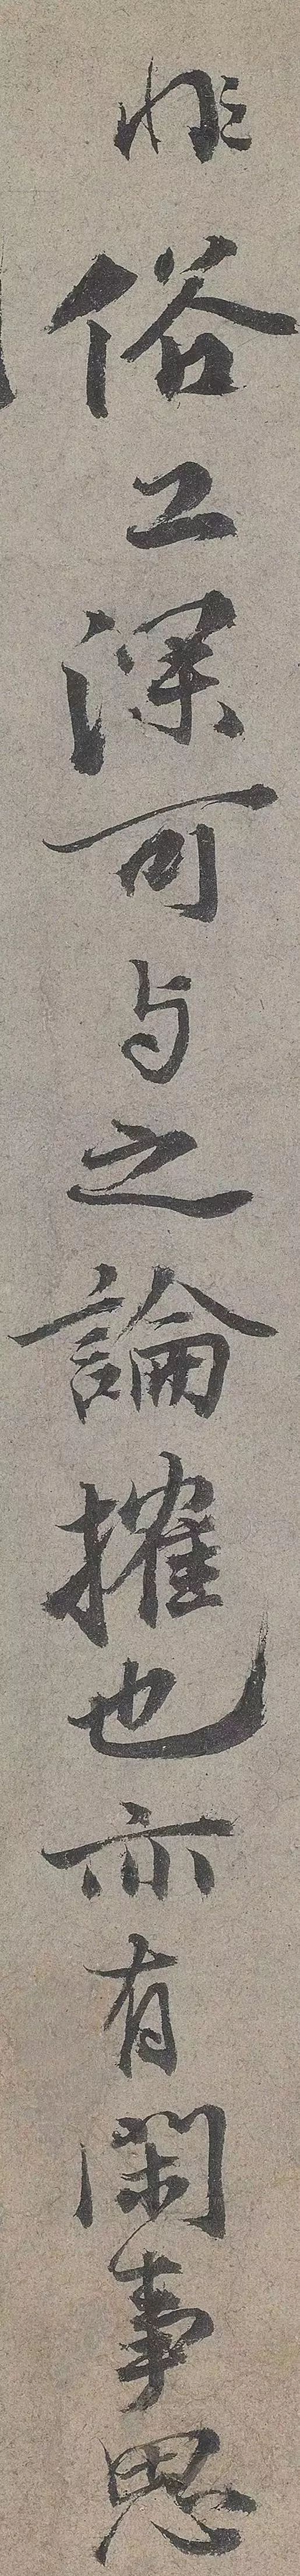 非俗工深可与之論搉也亦有閑事思